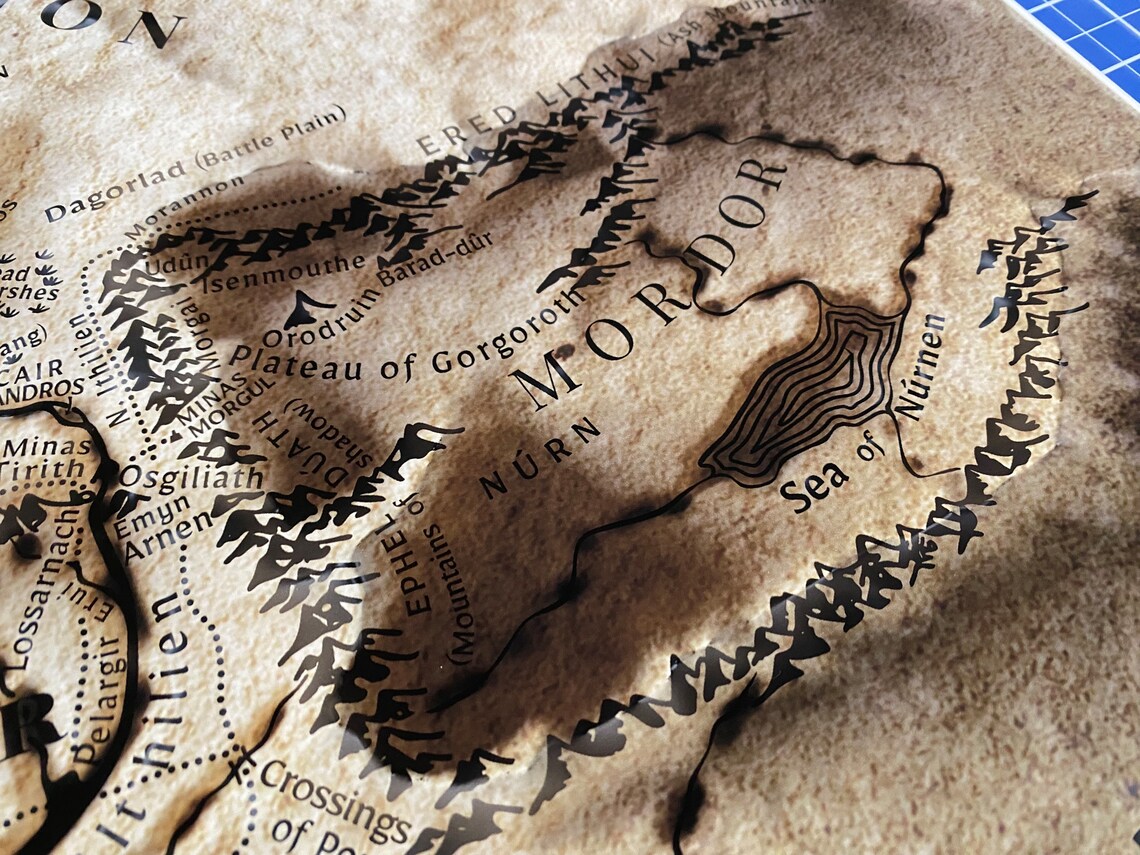 ON
ERED LITHUI (Ash Mountains
Dagorlad (Battle Plain)
Morannon
Udûn
Isenmouthe
Barad-dûr
Orodruin
Plateau of Gorgoroth
MORDOR
N Ithilien
Morgai
CAIR
ANDROS
MINAS
MORGUL
Minas
Tirith
Osgiliath
Emyn
Arnen
EPHEL DÚATH
(Mountains of shadow)
NÚRN
Sea of Núrnen
Lossarnach
Erui
Pelargir
Ithilien
R
Crossings
of